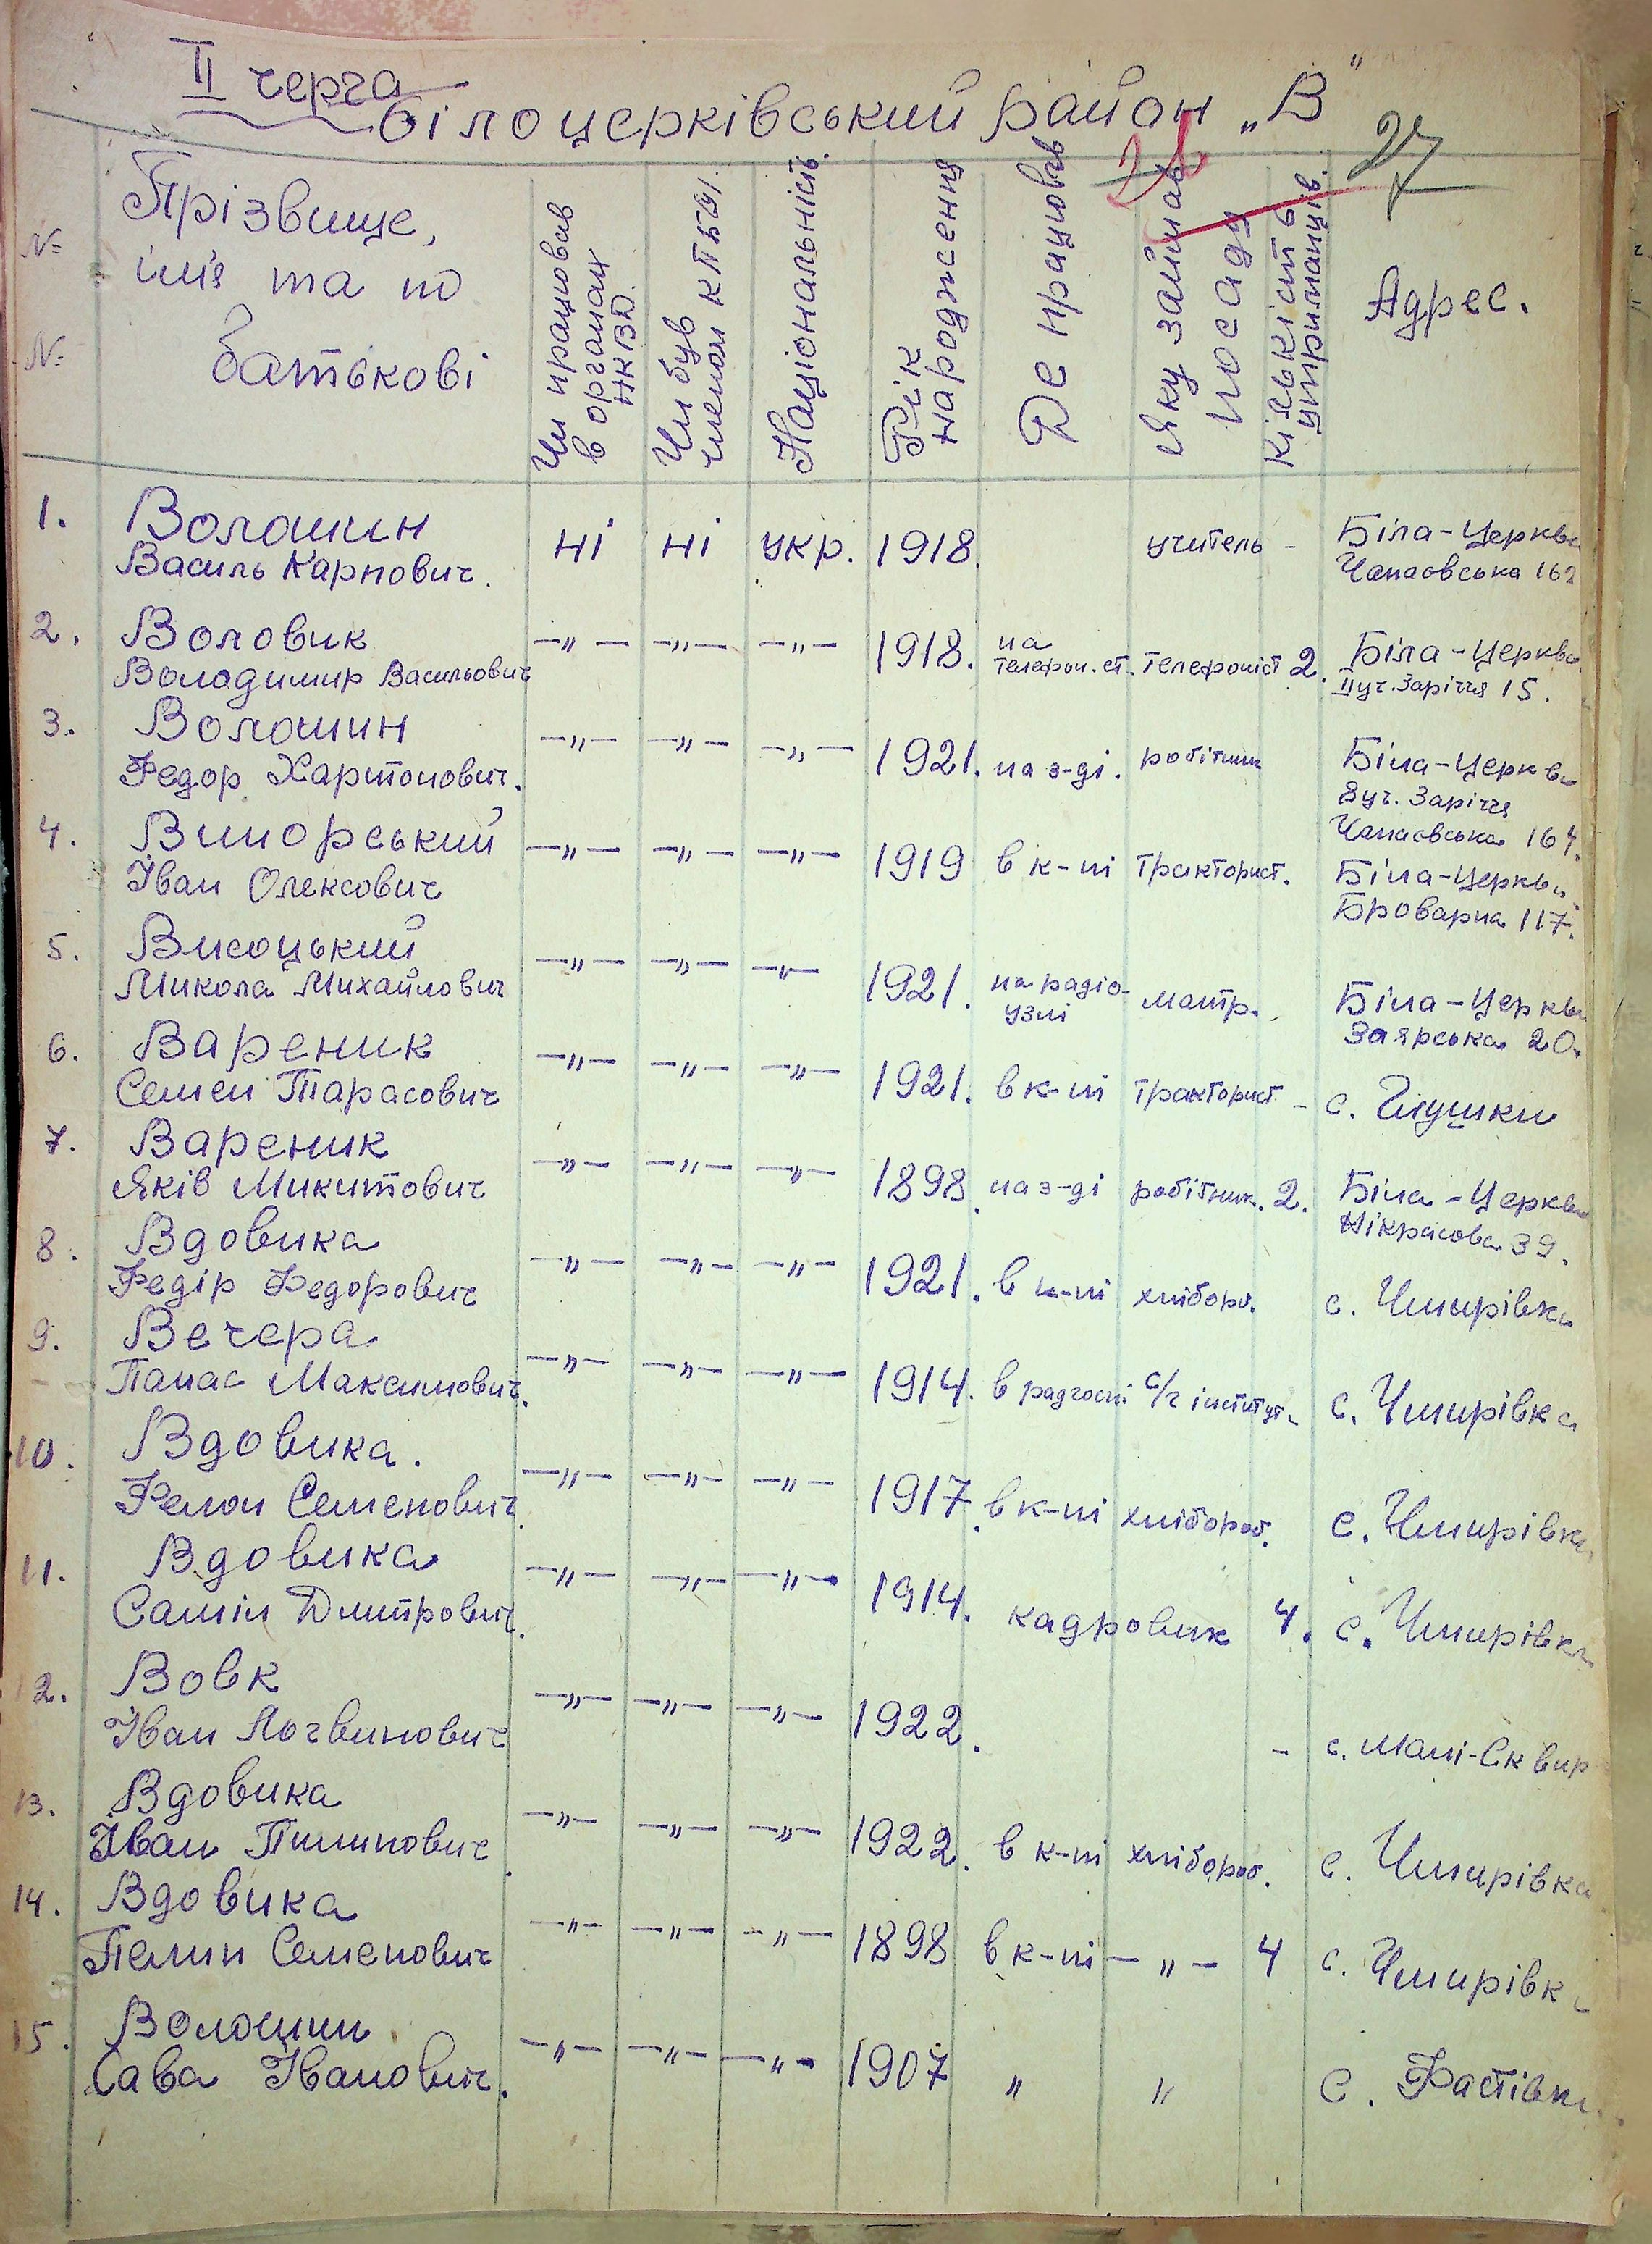 II черга
Білоцерківський район „В"
28
27
№ №
Прізвище, ім'я та по батькові
Чи працював в органах НКВД.
Чи був членом КПб/У/.
Національність.
Рік народження
Де працював
Яку займав посаду
Кількість утриманців.
Адрес.
1. Волошин ні ні укр. 1918. учитель - Біла-Церква
Василь Карпович. Чапаєвська 162
2. Воловик —"— —"— —"— 1918. на телефон. ст. телефоніст 2. Біла-Церква
Володимир Васильович II уч. Заріччя 15.
3. Волошин —"— —"— —"— 1921. на з-ді. робітник Біла-Церква
Федор Харитонович. 8 уч. Заріччя
Чапаєвська 164.
4. Вигорський —"— —"— —"— 1919 в к-пі тракторист. Біла-Церква
Іван Олексович Броварна 117.
5. Висоцький —"— —"— —"— 1921. на радіо-узлі монтр. Біла-Церква
Микола Михайлович Заярська 20.
6. Вареник —"— —"— —"— 1921. в к-пі тракторист - с. Глушки
Семен Тарасович
7. Вареник —"— —"— —"— 1898. на з-ді робітник. 2. Біла-Церква
Яків Микитович Нікрасова 39.
8. Вдовика —"— —"— —"— 1921. в к-пі хлібороб. с. Чмирівка
Федір Федорович
9. Вечера —"— —"— —"— 1914. в радгоспі с/г інститут. с. Чмирівка
Панас Максимович.
10. Вдовика. —"— —"— —"— 1917. в к-пі хлібороб. с. Чмирівка
Семенович.
11. Вдовика —"— —"— —"— 1914. кадровик 4. с. Чмирівка
Дмитрович.
12. Вовк —"— —"— —"— 1922. - с. Малі-Сквир
Іван Логвинович
13. Вдовика —"— —"— —"— 1922. в к-пі хлібороб. с. Чмирівка
Іван Пилипович
14. Вдовика —"— —"— —"— 1898 в к-пі —"— 4 с. Чмирівка
Пелип Семенович
15. Волошин —"— —"— —"— 1907 " " с. Фастівка
Сава Іванович.